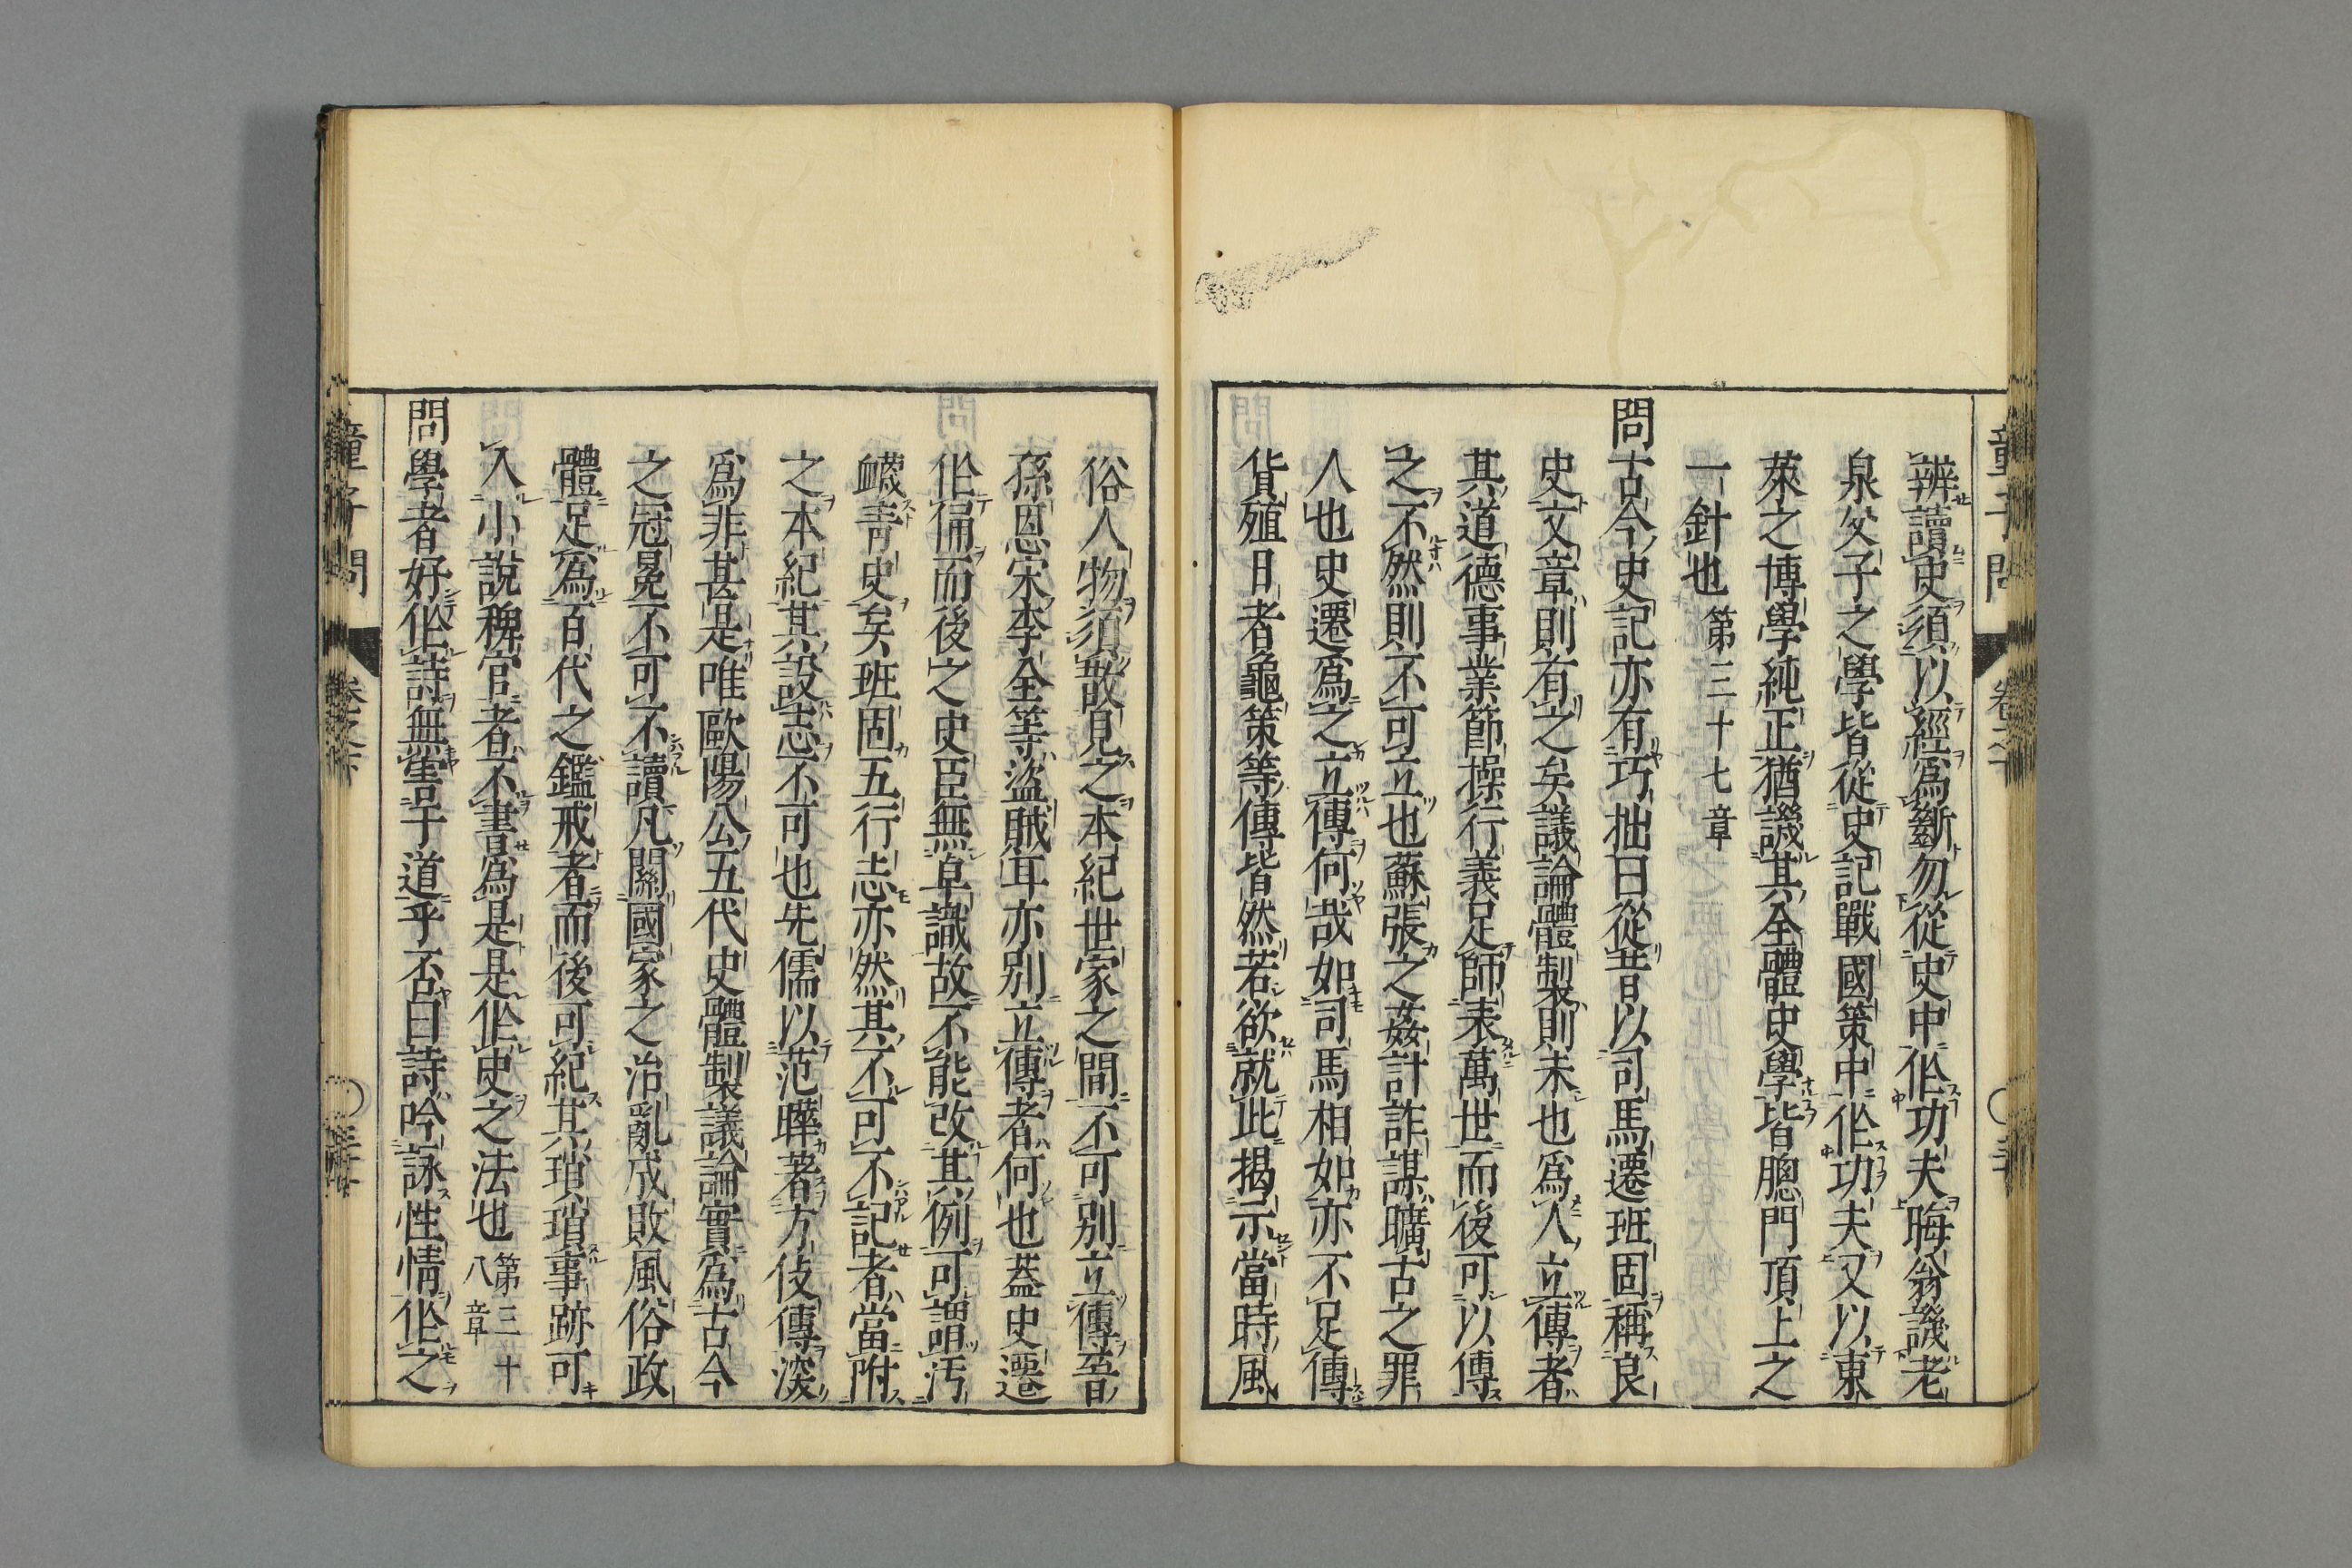 辨讀史須以經爲斷勿從史中作功夫晦翁譏老
泉父子之學皆從史記戰國策中作功夫又以東
萊之博學純正猶譏其全體史學皆腮門頂上之
一針也 第三十七章
問古今史記亦有巧拙曰從昔以司馬遷班固稱良
史文章則有之矣議論體製則未也爲人立傳者
其道德事業節操行義足師表萬世而後可以傳
之不然則不可立也蘇張之姦計詐謀曠古之罪
人也史遷爲之立傳何哉如司馬相如亦不足傳
貨殖日者龜策等傳皆然若欲就此揭示當時風
俗人物須散見之本紀世家之間不可別立傳晉
孫恩宋李全等盜賊耳亦別立傳者何也蓋史遷
作俑而後之史臣無卓識故不能改其例可謂汚
衊靑史矣班固五行志亦然其不可不記者當附
之本紀其設志不可也先儒以范曄著方伎傳深
爲非甚是唯歐陽公五代史體製議論實爲古今
之冠冕不可不讀凡關國家之治亂成敗風俗政
體足爲百代之鑑戒者而後可紀其瑣瑣事跡可
入小說稗官者不書爲是是作史之法也 第三十八章
問學者好作詩無害于道乎否曰詩吟詠性情作之
童子問
童子問